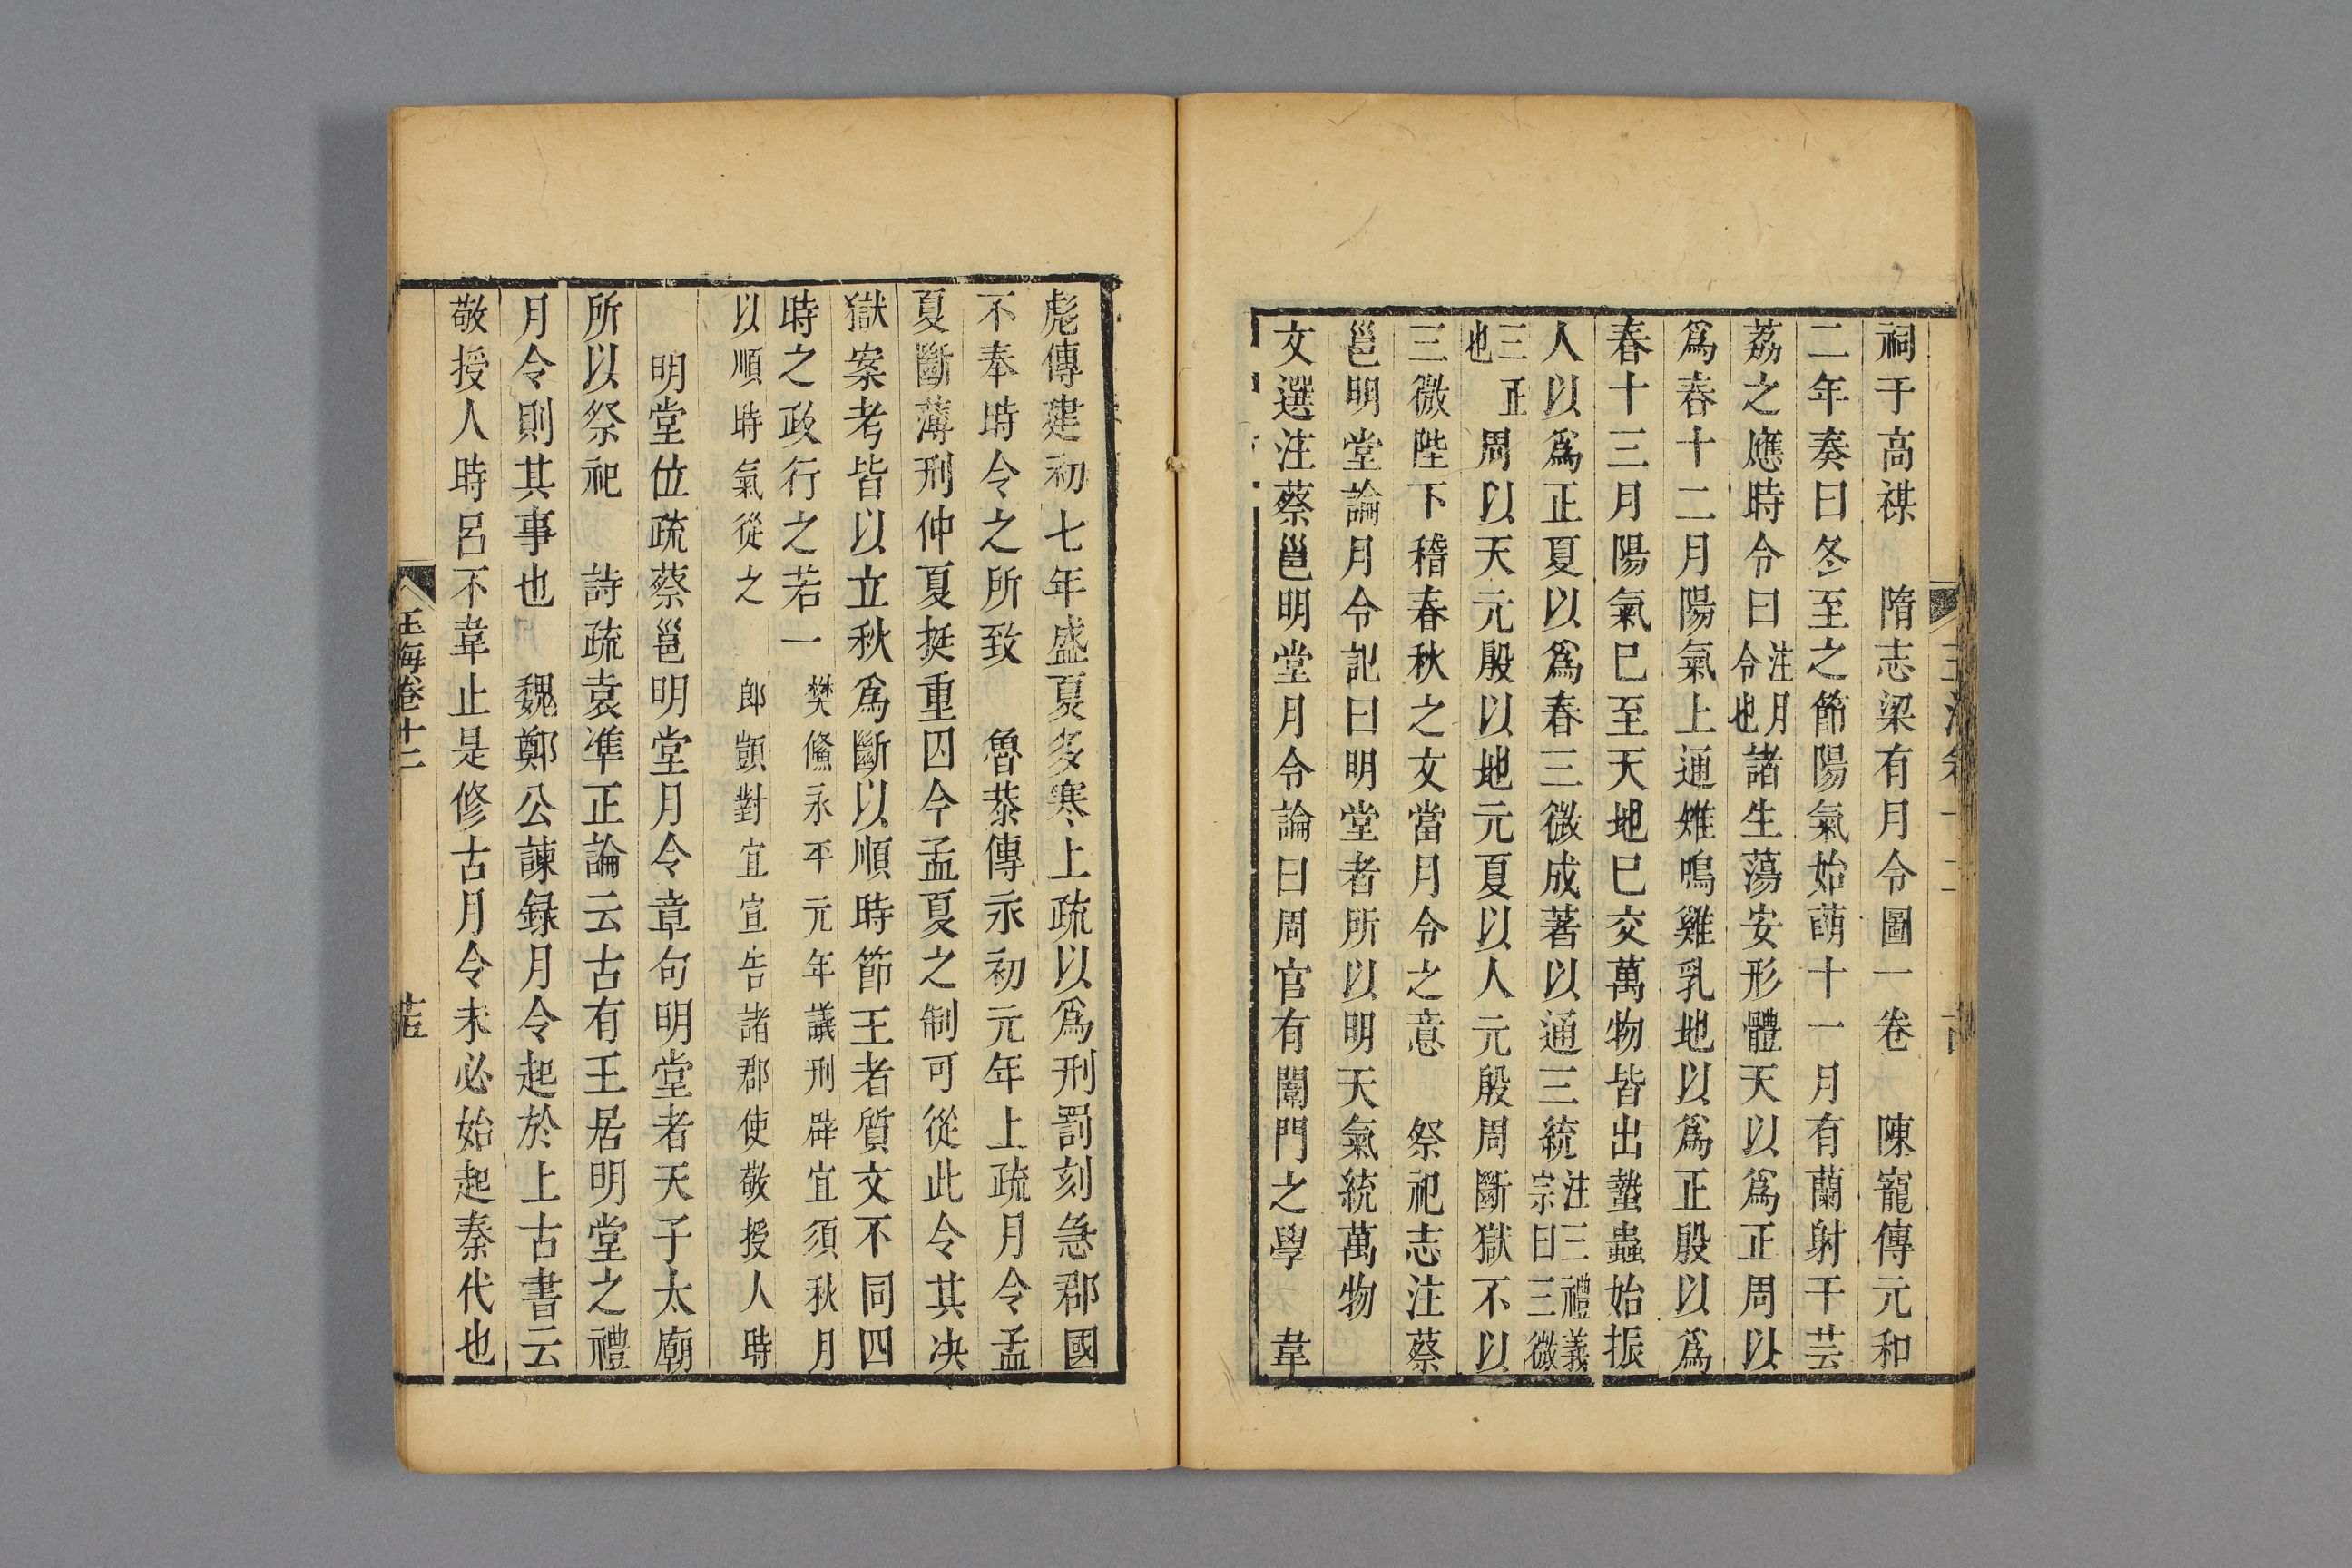 祠于高禖　隋志梁有月令圖一卷　陳寵傳元和
二年奏曰冬至之節陽氣始萌十一月有蘭射干芸
荔之應時令曰注月令也諸生蕩安形體天以爲正周以
爲春十二月陽氣上通雉鳴雞乳地以爲正殷以爲
春十三月陽氣巳至天地巳交萬物皆出蟄蟲始振
人以爲正夏以爲春三微成著以通三統注三禮義宗曰三微
三正也周以天元殷以地元夏以人元殷周斷獄不以
三微陛下稽春秋之文當月令之意　祭祀志注蔡
邕明堂論月令記曰明堂者所以明天氣統萬物
文選注蔡邕明堂月令論曰周官有闈門之學　韋
彪傳建初七年盛夏多寒上疏以爲刑罰刻急郡國
不奉時令之所致　魯恭傳永初元年上疏月令孟
夏斷薄刑仲夏挺重囚今孟夏之制可從此令其决
獄案考皆以立秋爲斷以順時節王者質文不同四
時之政行之若一　樊鯈永平元年議刑辟宜須秋月
以順時氣從之　郎顗對宜宣告諸郡使敬授人時
明堂位疏蔡邕明堂月令章句明堂者天子太廟
所以祭祀　詩疏袁準正論云古有王居明堂之禮
月令則其事也　魏鄭公諫録月令起於上古書云
敬授人時呂不韋止是修古月令未必始起秦代也
玉海卷十二